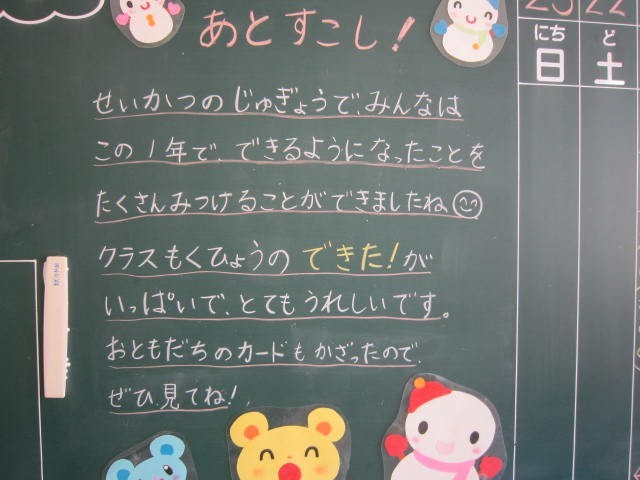 あとすこし!
せいかつのじゅぎょうで、みんなは
この1年で、できるようになったことを
たくさんみつけることができましたね。
クラスもくひょうの できた!が
いっぱいで、とてもうれしいです。
おともだちのカードもかざったので、
ぜひ見てね!
23 22
にち ど
日 土